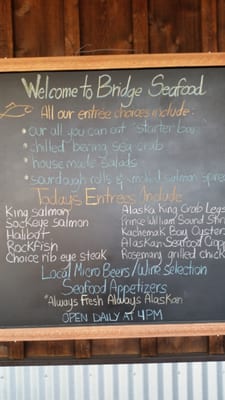 Welcome to Bridge Seafood
All our entrée choices include:
* our all you can eat "starter bar"
* chilled bering sea crab
* house made salads
* sourdough rolls & smoked salmon spread
Today's Entrees Include
King salmon
Sockeye salmon
Halibut
Rockfish
Choice rib eye steak
Alaska King Crab Legs
Prince William Sound
Kachemak Bay Oyster
Alaskan Seafood
Rosemary grilled chick
Local Micro Beers/Wine Selection
Seafood Appetizers
"Always Fresh Always Alaskan
OPEN DAILY AT 4PM